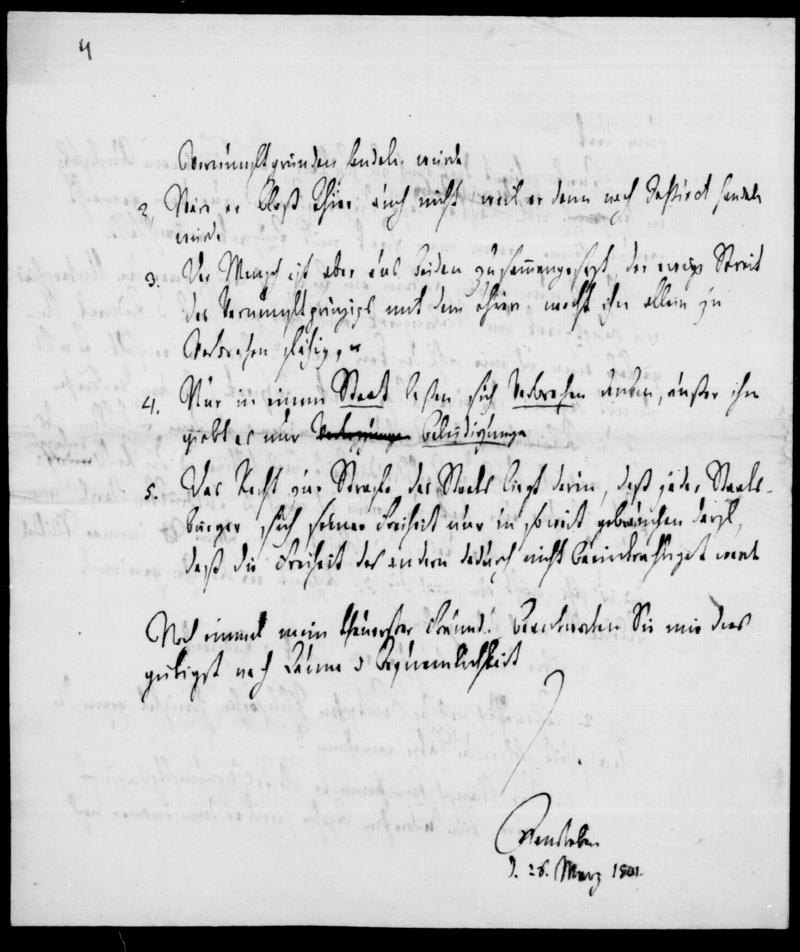 4
Vernunftgründen handeln würde
2, Wär er bloß Thier auch nicht weil er dann nach Instinct handeln
würde
3. Der Mensch ist aber aus beiden zusammengesetzt, der ewige Streit
des Vernunftprinzips mit dem Thier macht ihn allein zu
Verbrechen fähig,
4. Nur in einem Staat laßen sich Verbrechen denken, außer ihm
giebt es nur Beleidigungen
5. Das Recht zur Strafe des Staats liegt darin, daß jeder Staats-
bürger sich seiner Freiheit nur in soweit gebrauchen darf,
daß die Freiheit des andern dadurch nicht beeinträchtiget werde
Noch einmal mein theuerster Freund! beantworten Sie mir dies
gütigst nach Laune u Bequemlichkeit
d. 26. März 1801.